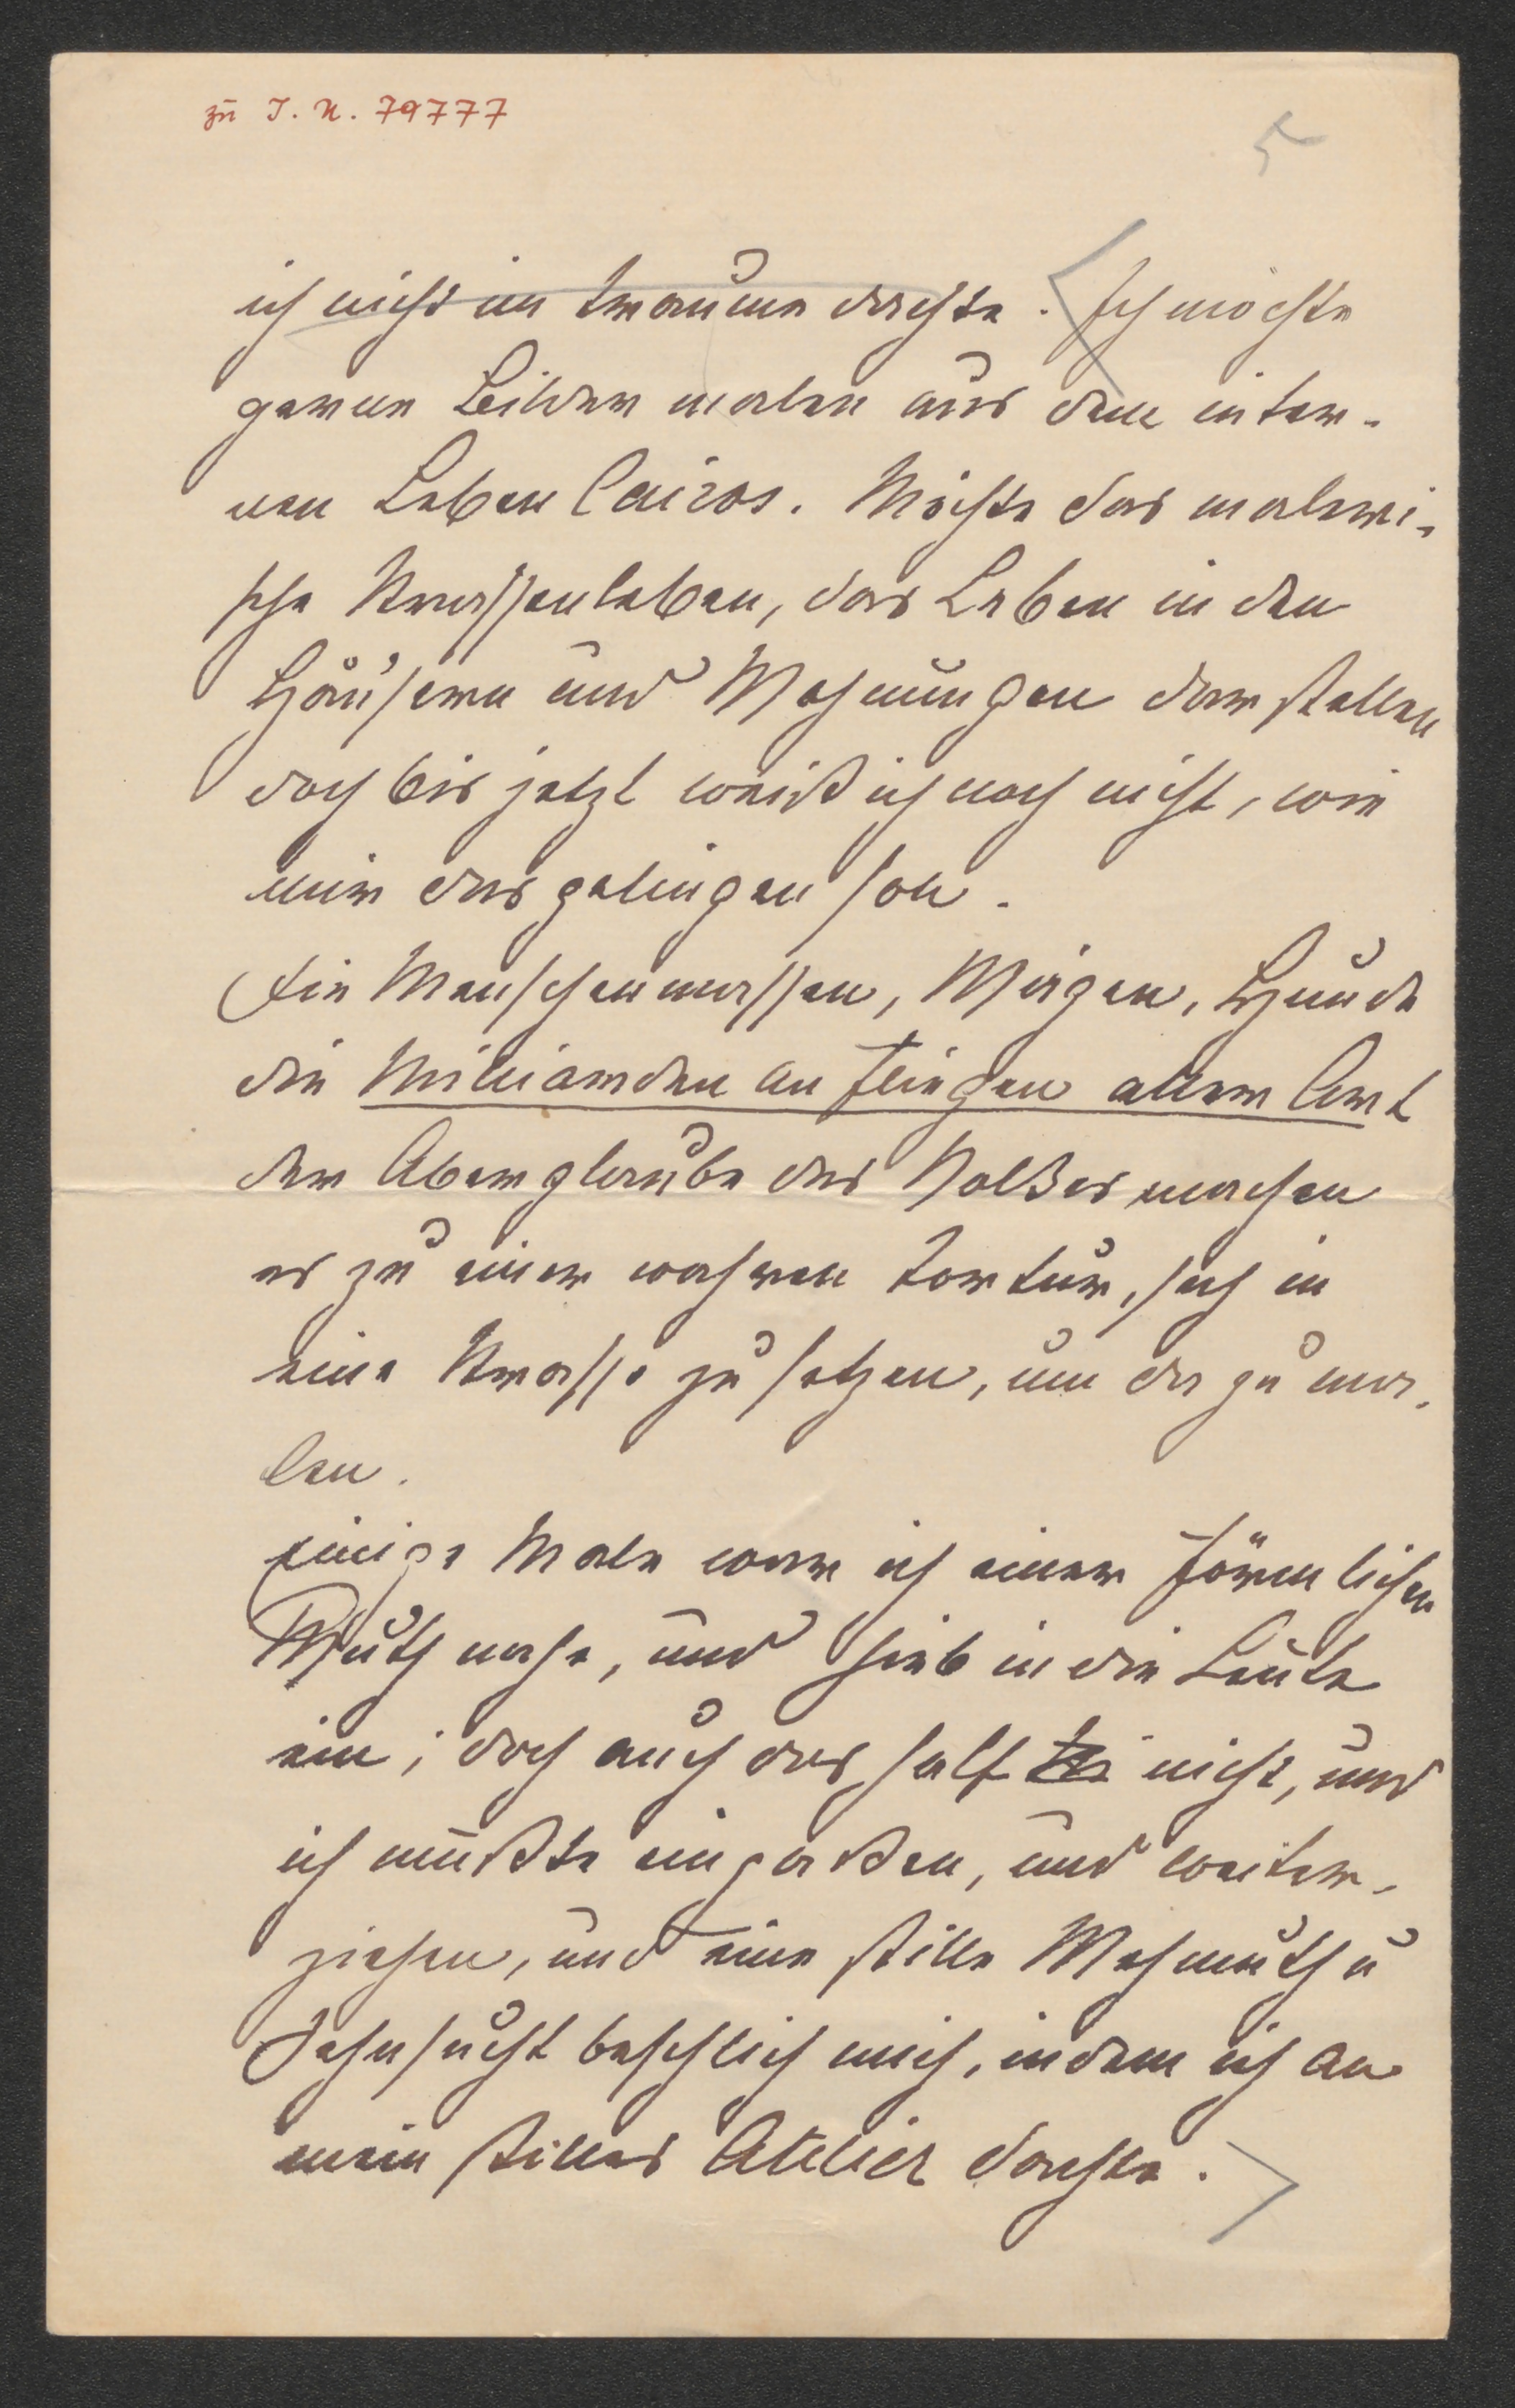 zu I. N. 79777
5
ich nicht im traume dachte. Ich möchte
gerne Bilder malen aus dem inter-
nen Leben Cairos. Möchte das maleri-
sche Strassenleben, das Leben in den
Häusern und Wohnungen darstellen
doch bis jetzt weiß ich noch nicht, wie
mir das gelingen soll.
Die Menschenmassen, Wägen, Hunde
die Miliarden an Fliegen aller Art
der Aberglaube des Volkes machen
es zu einer wahren Tortur, sich in
eine Strasse zu setzen, um da zu ma-
len.
Einige Male war ich einer förmlichen
Wuth nahe, und hieb in die Leute
ein; doch auch das half nicht, und
ich mußte einpacken, und weiter-
ziehen, und eine stille Wehmuth u
Sehnsucht beschlich mich, indem ich an
mein stilles Atelier dachte.